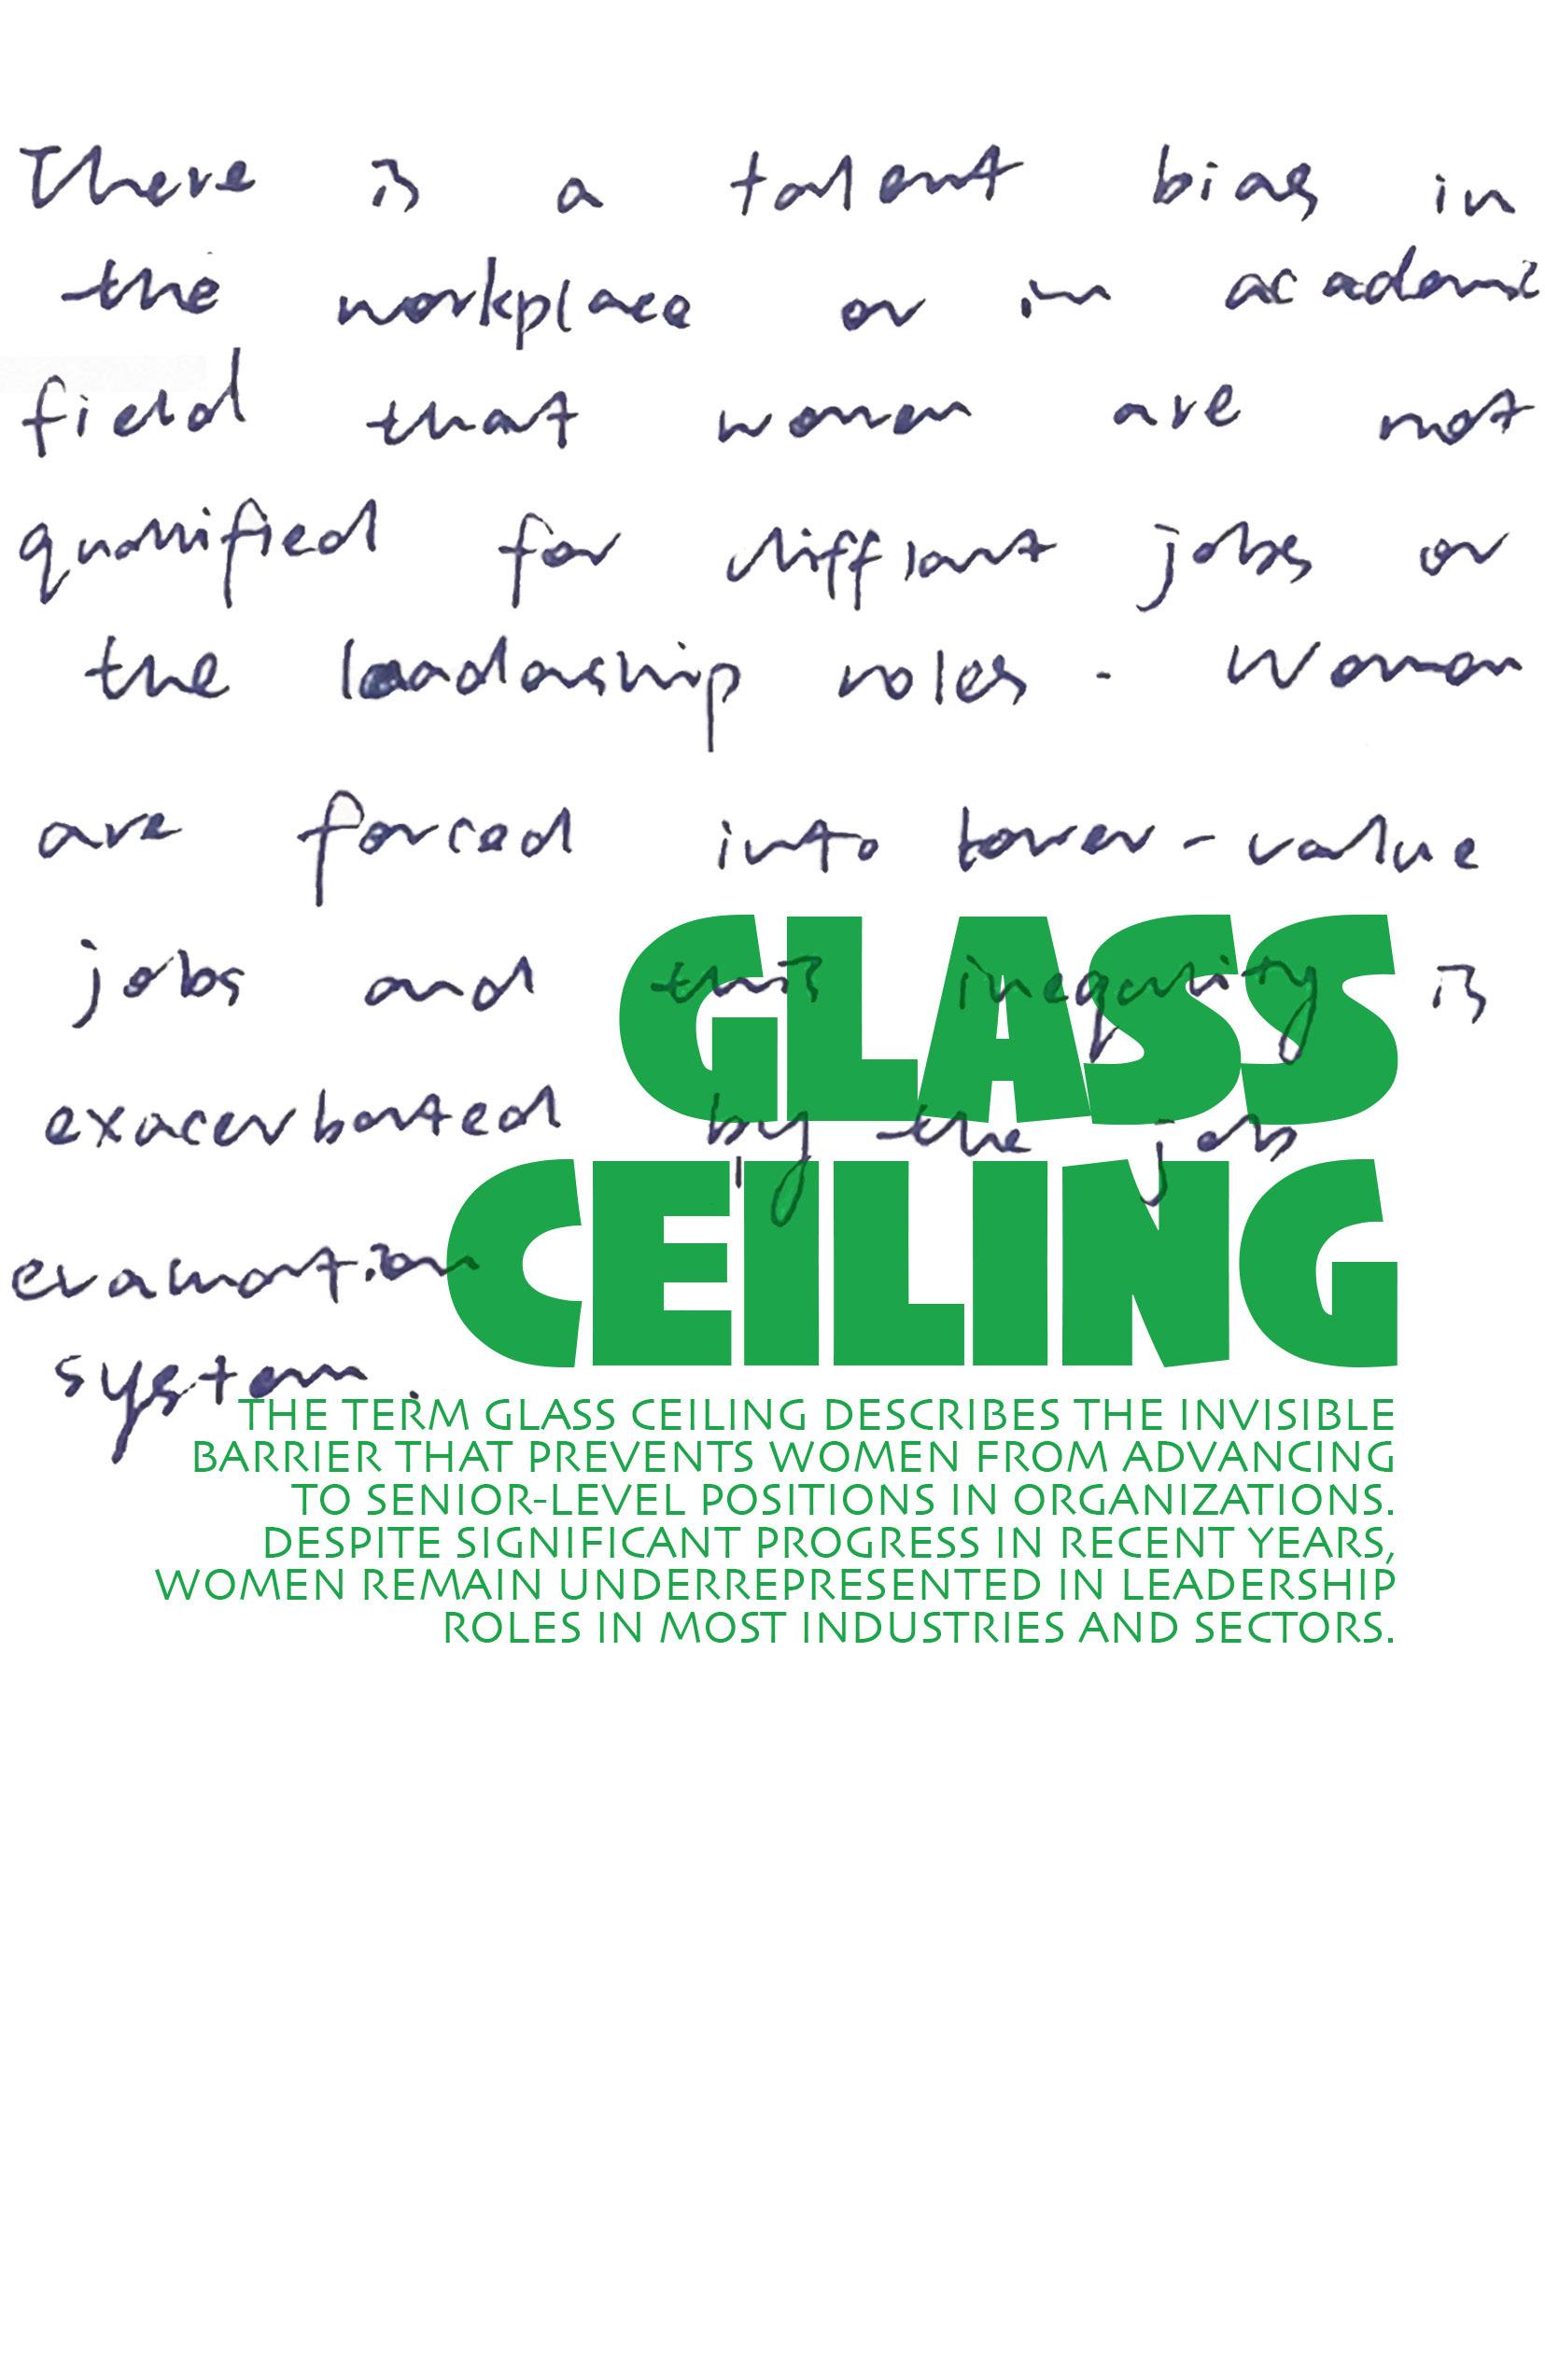 There is a talent bias in
the workplace or in academic
field that women are not
qualified for different jobs or
the leadership roles. Women
are forced into lower-value
jobs and this inequality is
exacerbated by the job
evaluation
system.
GLASS
CEILING
THE TERM GLASS CEILING DESCRIBES THE INVISIBLE
BARRIER THAT PREVENTS WOMEN FROM ADVANCING
TO SENIOR-LEVEL POSITIONS IN ORGANIZATIONS.
DESPITE SIGNIFICANT PROGRESS IN RECENT YEARS,
WOMEN REMAIN UNDERREPRESENTED IN LEADERSHIP
ROLES IN MOST INDUSTRIES AND SECTORS.